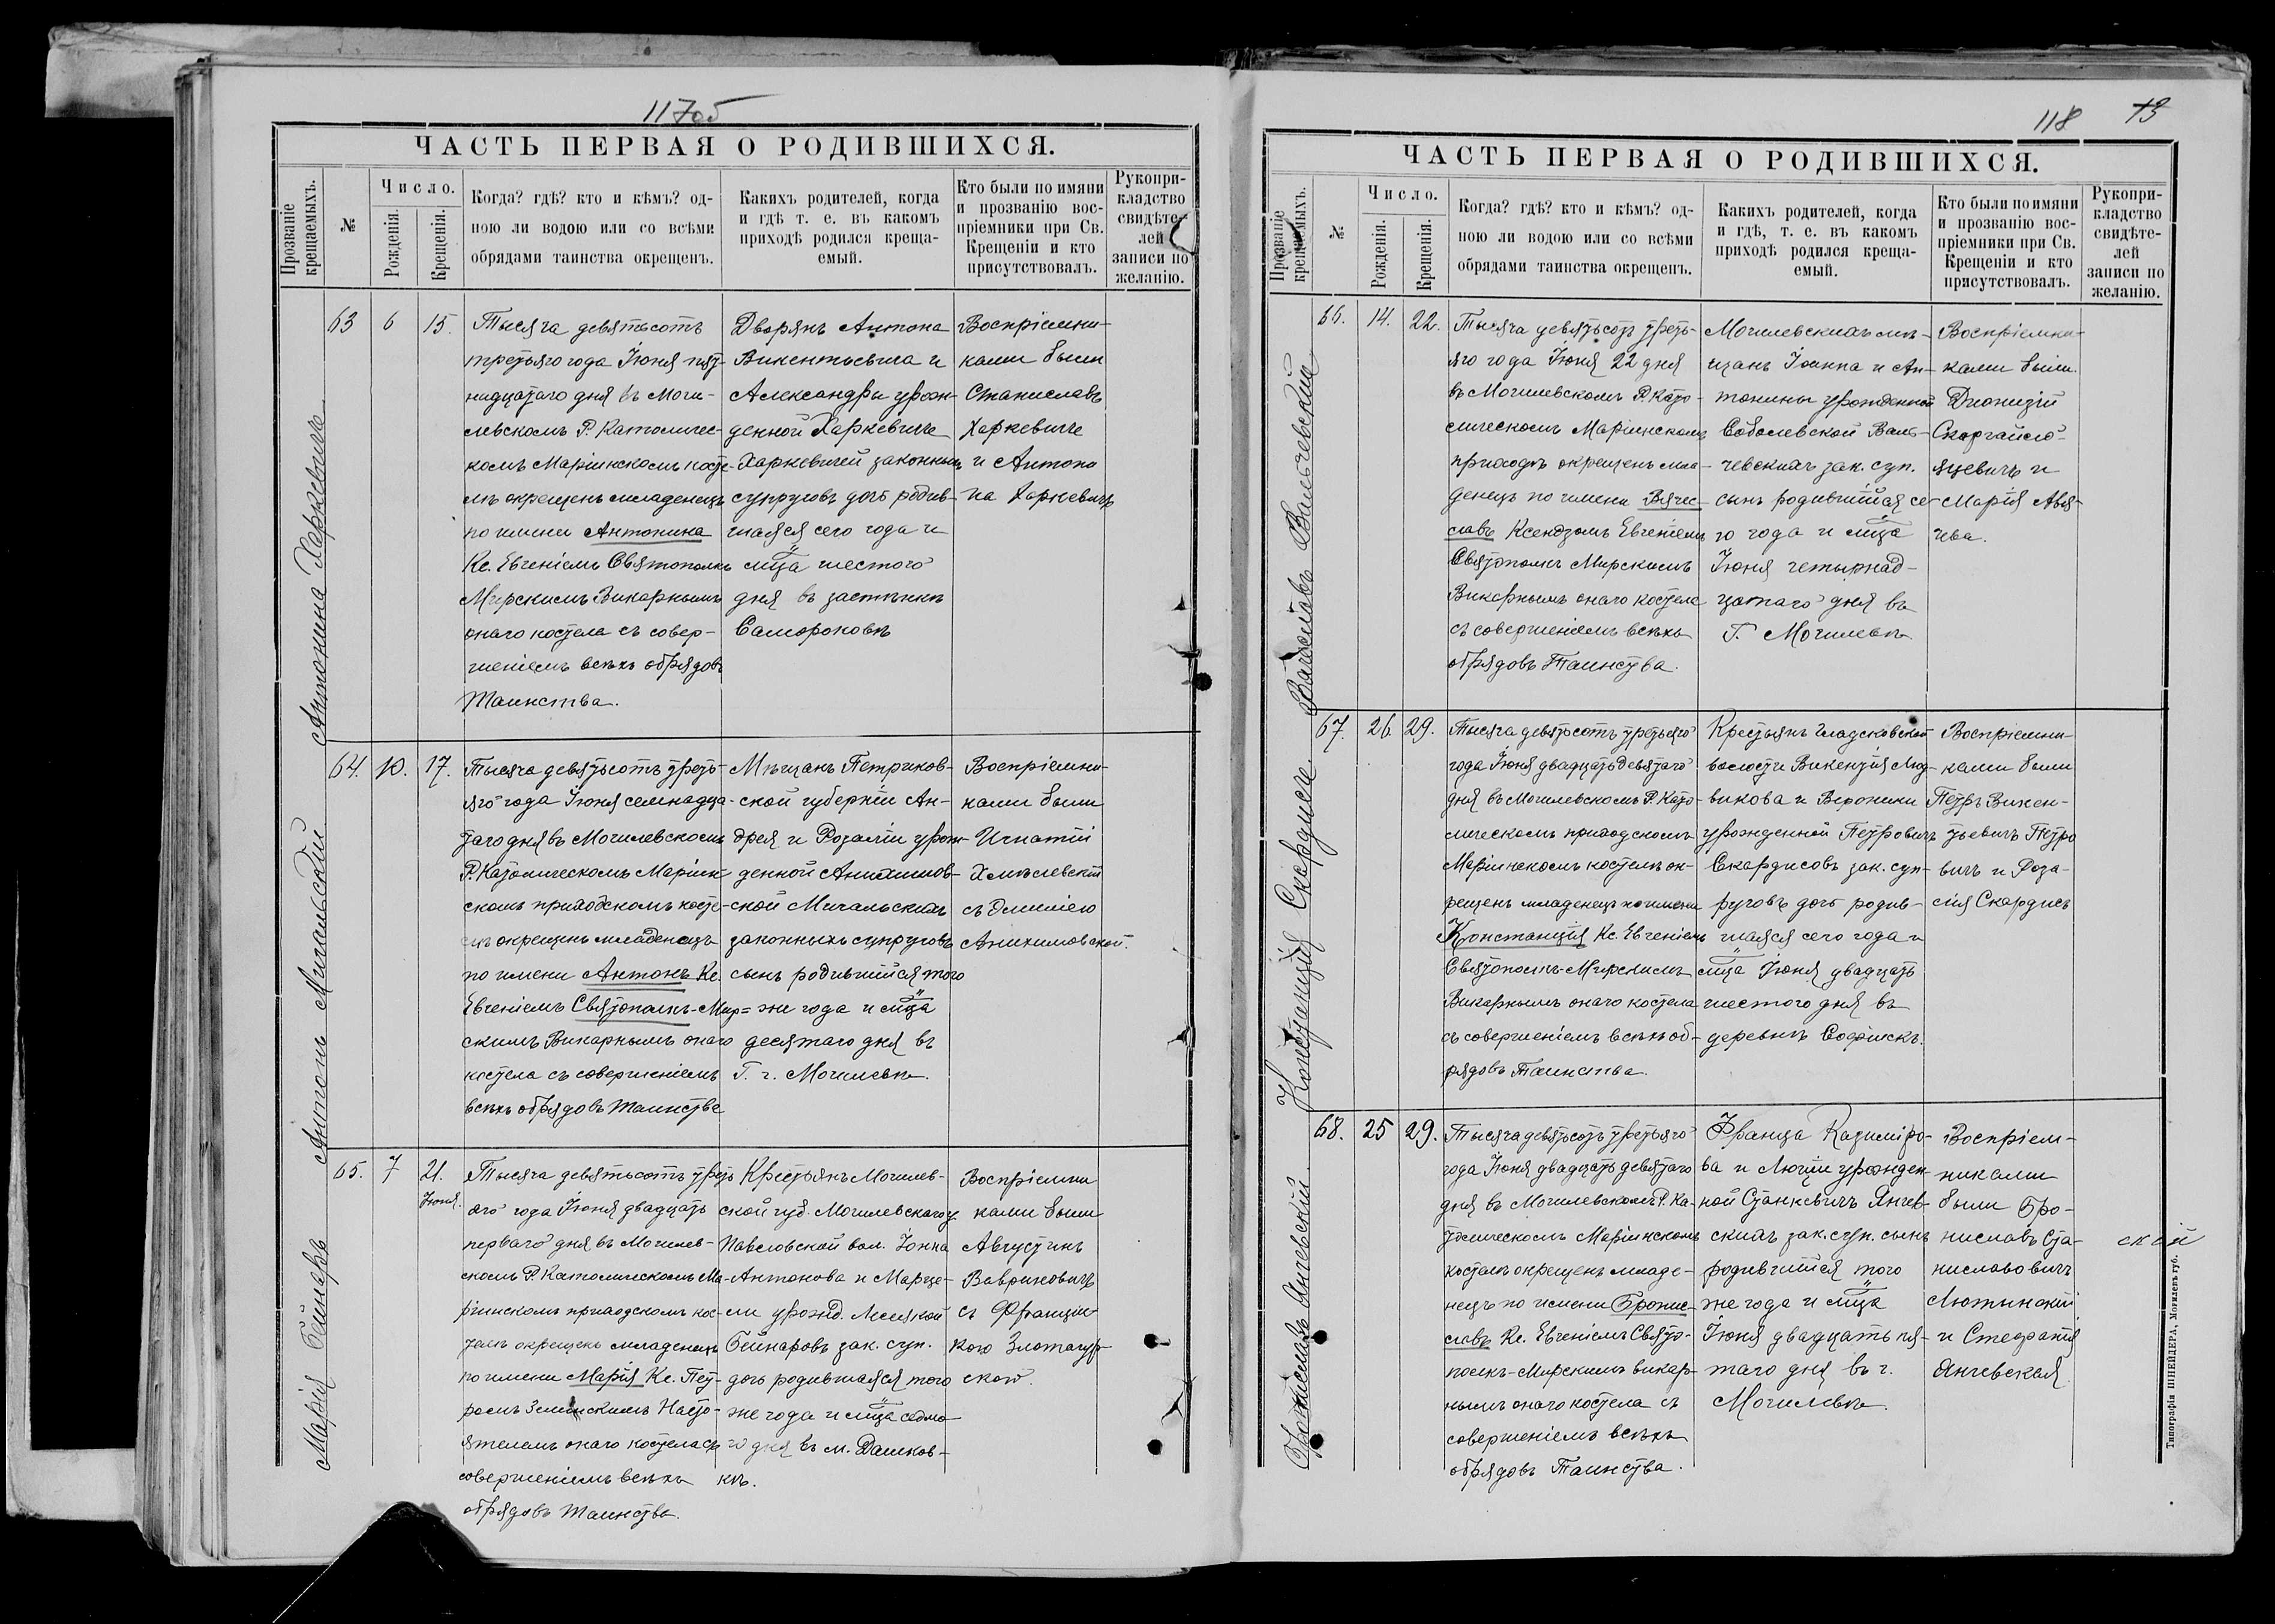 117об
ЧАСТЬ ПЕРВАЯ О РОДИВШИХСЯ.
Прозваніе крещаемыхъ.
№
Число.
Рожденія.
Крещенія.
Когда? гдѣ? кто и кѣмъ? од-
ною ли водою или со всѣми
обрядами таинства окрещенъ.
Какихъ родителей, когда
и гдѣ т. е. въ какомъ
приходѣ родился креща-
емый.
Кто были по имяни
и прозванію вос-
пріемники при Св.
Крещеніи и кто
присутствовалъ.
Рукопри-
кладство
свидѣте-
лей
записи по
желанію.
Антонина Харкевичъ
63
6
15.
Тысяча девятьсотъ
третьяго года Іюня пят-
надцатаго дня въ Моги-
левскомъ Р. Католичес-
комъ Маріинскомъ косте-
лѣ окрещенъ младенецъ
по имени Антонина
Кс. Евгеніемъ Святополкъ
Мирскимъ Викарнымъ
онаго костела съ совер-
шеніемъ всѣхъ обрядовъ
Таинства.
Дворянъ Антона
Викентьевича и
Александры урож-
денной Харкевичъ
Харкевичей законныхъ
супруговъ дочь родив-
шаяся сего года и
м̃ца шестого
дня въ застѣнкѣ
Самороковѣ
Воспріемни-
ками были
Станиславъ
Харкевичъ
и Антони
на Харкевичъ
Антонъ Мигальскій
64.
10.
17.
Тысяча девятьсотъ треть-
яго года Іюня семнадца-
таго дня въ Могилевскомъ
Р. Католическомъ Маріин-
скомъ приходскомъ косте-
лѣ окрещенъ младенецъ
по имени Антонъ Кс.
Евгеніемъ Святополкъ-Мир=
скимъ Викарнымъ онаго
костела съ совершеніемъ
всѣхъ обрядовъ таинства
Мѣщанъ Петриков-
ской губерніи Ан-
дрея и Розаліи урож-
денной Анихимов-
ской Мигальскихъ
законныхъ супруговъ
сынъ родившійся того
же года и м̃ца
десятаго дня въ
Г. г. Могилевѣ.
Воспріемни-
ками были
Игнатій
Хмѣлевскій
съ Эмиліею
Анихимовской.
Марія Бейнаръ
65.
7
21.
Іюня.
Тысяча девятьсотъ треть
яго года Іюня двадцать
перваго дня въ Могилев-
скомъ Р. Католическомъ Ма-
ріинскомъ приходскомъ кос-
телѣ окрещенъ младенецъ
по имени Марія Кс. Пет-
ромъ Зелинскимъ Насто-
ятелемъ онаго костела съ
совершеніемъ всѣхъ
обрядовъ таинства.
Крестьянъ Могилев-
ской губ. Могилевскаго у.
Павловской вол. Іоанна
Антонова и Марце-
ли урожд. Лесикой
Бейнаровъ зак. суп.
дочь родившаяся того
же года и м̃ца седмо
го дня въ м. Дашков-
кѣ.
Воспріемни
ками были
Августинъ
Вавриковичъ
съ Францис-
кою Злотагур-
ской.
118
73
ЧАСТЬ ПЕРВАЯ О РОДИВШИХСЯ.
Прозваніе крещаемыхъ.
№
Число.
Рожденія.
Крещенія.
Когда? гдѣ? кто и кѣмъ? од-
ною ли водою или со всѣми
обрядами таинства окрещенъ.
Какихъ родителей, когда
и гдѣ, т. е. въ какомъ
приходѣ родился креща-
емый.
Кто были по имяни
и прозванію вос-
пріемники при Св.
Крещеніи и кто
присутствовалъ.
Рукопри-
кладство
свидѣте-
лей
записи по
желанію.
Вальчевскій
66.
14.
22.
Тысяча девятьсотъ треть-
яго года Іюня 22 дня
въ Могилевскомъ Р. Като-
лическомъ Маріинскомъ
приходѣ окрещенъ мла-
денецъ по имени Вячес-
славъ Ксендзомъ Евгеніемъ
Святополкъ Мирскимъ
Викарнымъ онаго костела
съ совершеніемъ всѣхъ
обрядовъ Таинства.
Могилевскихъ мѣ-
щанъ Іоанна и Ан-
тонины урожденной
Соболевской Валь-
чевскихъ зак. суп.
сынъ родившійся се-
го года и м̃ца
Іюня четырнад-
цатаго дня въ
Г. Могилевѣ.
Воспріемни-
ками были.
Діонизій
Скаргайло-
яцевичъ и
Марія Авья-
чева.
Констанція Скардисъ
67.
26.
29.
Тысяча девятьсотъ третьяго
года Іюня двадцать девятаго
дня въ Могилевскомъ Р. Като-
лическомъ приходскомъ
Маріинскомъ костелѣ ок-
рещенъ младенецъ по имени
Констанція Кс. Евгеніемъ
Святополкъ-Мирскимъ
Викарнымъ онаго костела
съ совершеніемъ всѣхъ об-
рядовъ Таинства.
Крестьянъ Чладсковской
волости Викентія Люд-
викова и Вероники
урожденной Петровичъ
Скардисовъ зак. суп-
руговъ дочь родив-
шаяся сего года и
м̃ца Іюня двадцать
шестого дня въ
деревнѣ Софійскъ.
Воспріемни-
ками были
Петръ Викен-
тьевичъ Петро
вичъ и Роза-
лія Скардисъ
Брониславъ Янчевскій
68.
25
29.
Тысяча девятьсотъ третьяго
года Іюня двадцать девятаго
дня въ Могилевскомъ Р. Ка-
толическомъ Маріинскомъ
костелѣ окрещенъ младе-
нецъ по имени Бронис-
славъ Кс. Евгеніемъ Свято-
полкъ-Мирскимъ викар-
нымъ онаго костела съ
совершеніемъ всѣхъ
обрядовъ Таинства.
Франца Казиміро-
ва и Люціи урожден
ной Станкевичъ Янчев-
скихъ зак. суп. сынъ
родившійся того
же года и м̃ца
Іюня двадцать пя-
таго дня въ г.
Могилевѣ.
Воспріем-
никами
были Бро-
ниславъ Ста-
ниславовичъ
Лютынскій
и Стефанія
Янчевская.
ской
Типографія ШНЕЙДЕРА, Могилевъ губ.